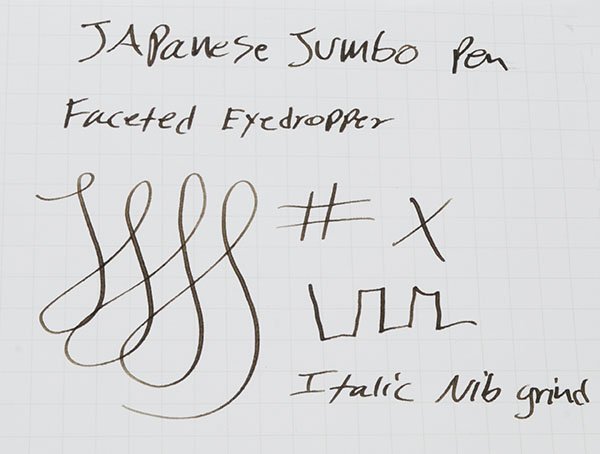 JAPanese Jumbo Pen
Faceted Eyedropper
# X
Italic Nib grind